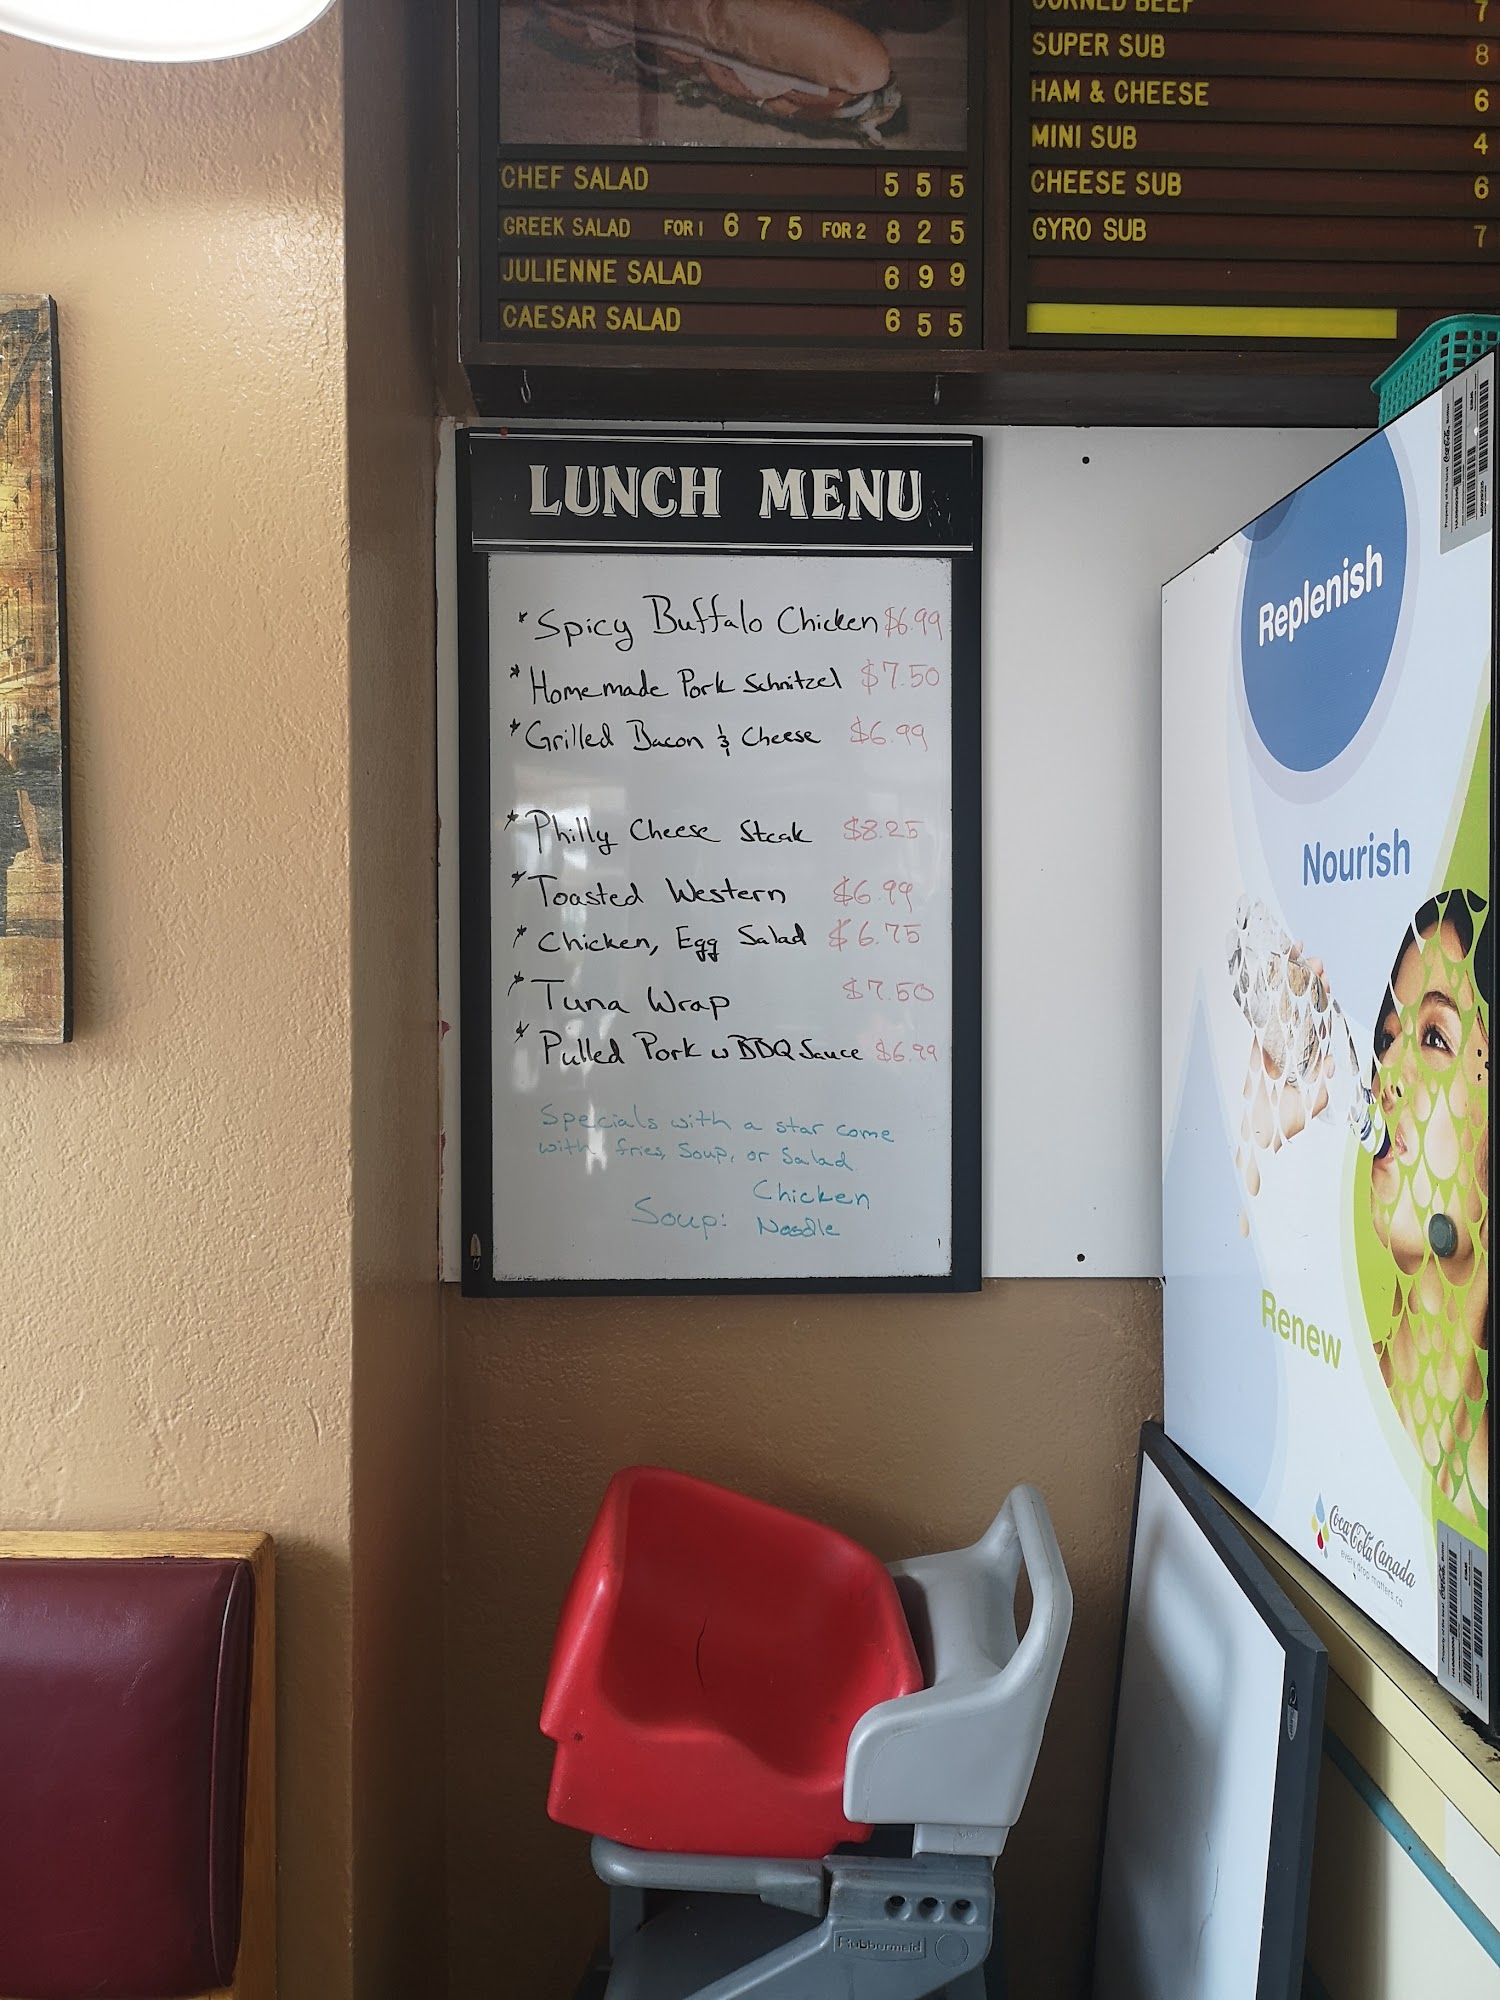 CHEF SALAD 5 5 5
GREEK SALAD FOR 1 6 7 5 FOR 2 8 2 5
JULIENNE SALAD 6 9 9
CAESAR SALAD 6 5 5
CORNED BEEF 7
SUPER SUB 8
HAM & CHEESE 6
MINI SUB 4
CHEESE SUB 6
GYRO SUB 7
LUNCH MENU
* Spicy Buffalo Chicken $6.99
* Homemade Pork Schnitzel $7.50
* Grilled Bacon & Cheese $6.99
* Philly Cheese Steak $8.25
* Toasted Western $6.99
* Chicken, Egg Salad $6.75
* Tuna Wrap $7.50
* Pulled Pork w BBQ Sauce $6.99
Specials with a star come
with fries, Soup, or Salad
Soup: Chicken
Noodle
Replenish
Nourish
Renew
Coca-Cola Canada
every drop matters.ca
Rubbermaid